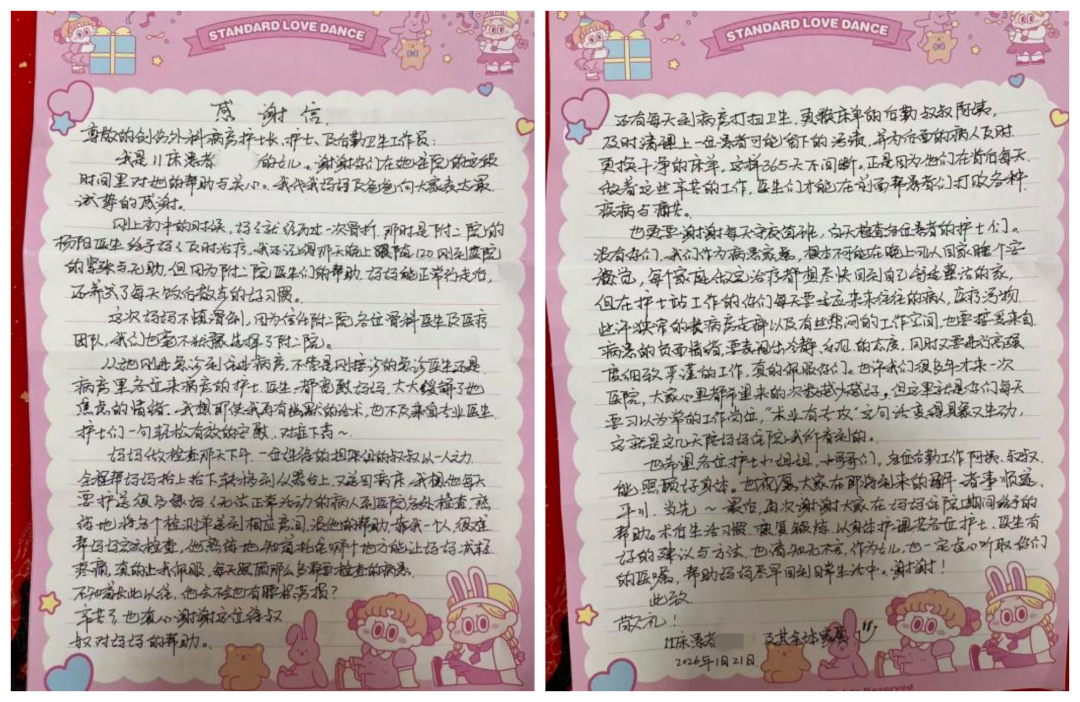 STANDARD LOVE DANCE
感谢信
尊敬的创伤外科病房护士长、护士、及后勤卫生工作员:
我是11床患者 的女儿。谢谢你们在她住院的这段
时间里对她的帮助与关心。我代我妈妈及爸爸向大家表达最
诚挚的感谢。
刚上初中的时候,妈妈就经历过一次骨折,那时是附二院的
杨阳医生给予妈妈及时治疗。我还记得那天晚上跟随120刚到医院
的紧张与无助,但因为附二院医生们的帮助,妈妈能正常行走后,
还养成了每天饭后散步的好习惯。
这次妈妈不慎滑倒,因为信任附二院各位骨科医生及医疗
团队,我们也毫不犹豫选择了附二院。
从她刚进急诊到住进病房,不管是刚接诊的急诊医生还是
病房里各位来病房的护士、医生,都宽慰妈妈,大大缓解了她
焦虑的情绪。我想即使我再有幽默的话术,也不及来自专业医生
护士们一句轻松有效的安慰,对症下药~
妈妈做检查那天下午,一位姓 的担架组的叔叔以一人之力
全程帮妈妈抬上抬下转移到仪器台上,又送回病房。我想他每天
要护送很多像妈妈无法正常活动的病人到医院各处检查,熟
练地将各个检测单送到相应房间,没他的帮助,靠我一个人,很难
帮妈妈完成检查,他熟练地知道托住哪个地方能让妈妈减轻
疼痛,真的让我佩服,每天照顾那么多需要检查的病患,
不知道长此以往,他会不会也有腰肌劳损?
辛苦了,也衷心谢谢这位 叔
叔对妈妈的帮助。
STANDARD LOVE DANCE
还有每天到病房打扫卫生,更换床单的后勤叔叔阿姨,
及时清理上一位患者可能留下的污渍,并为后面的病人及时
更换干净的床单。这样365天不间断。正是因为他们在背后每天
做着这些辛苦的工作,医生们才能在前面帮患者们打败各种
疾病与痛苦。
也更要谢谢每天守夜值班,白天检查各位患者的护士们。
没有你们,我们作为病患家属,根本不可能在晚上可以回家睡个安
稳觉,每个家庭做完治疗都想尽快回到自己舒适整洁的家,
但在护士站工作的你们每天要适应来来往往的病人,医疗污物,
些许狭窄的长病房走廊以及有些郁闷的工作空间,也要接受来自
病患的负面情绪,要表现出冷静、乐观的态度,同时又要进行高强
度细致严谨的工作,真的佩服你们。也许我们很多年才来一次
医院,大家心里都希望来的次数越少越好。但这里就是你们每天
要习以为常的工作岗位,“术业有专攻”这句话变得具象又生动,
这就是这几天陪妈妈住院我所看到的。
也希望各位护士小姐姐、小哥哥们,各位后勤工作阿姨、叔叔
能照顾好身体。也祝愿大家在即将到来的马年,诸事顺遂,
平川,当先~最后,再次谢谢大家在妈妈住院期间给予的
帮助。术后生活习惯、康复锻炼,以及身体护理若各位护士、医生有
好的建议与方法,也请知无不言,作为女儿,也一定虚心听取你们
的医嘱,帮助妈妈尽早回到日常生活中。谢谢!
此致
敬礼!
11床患者 及其全体家属
2026年1月21日